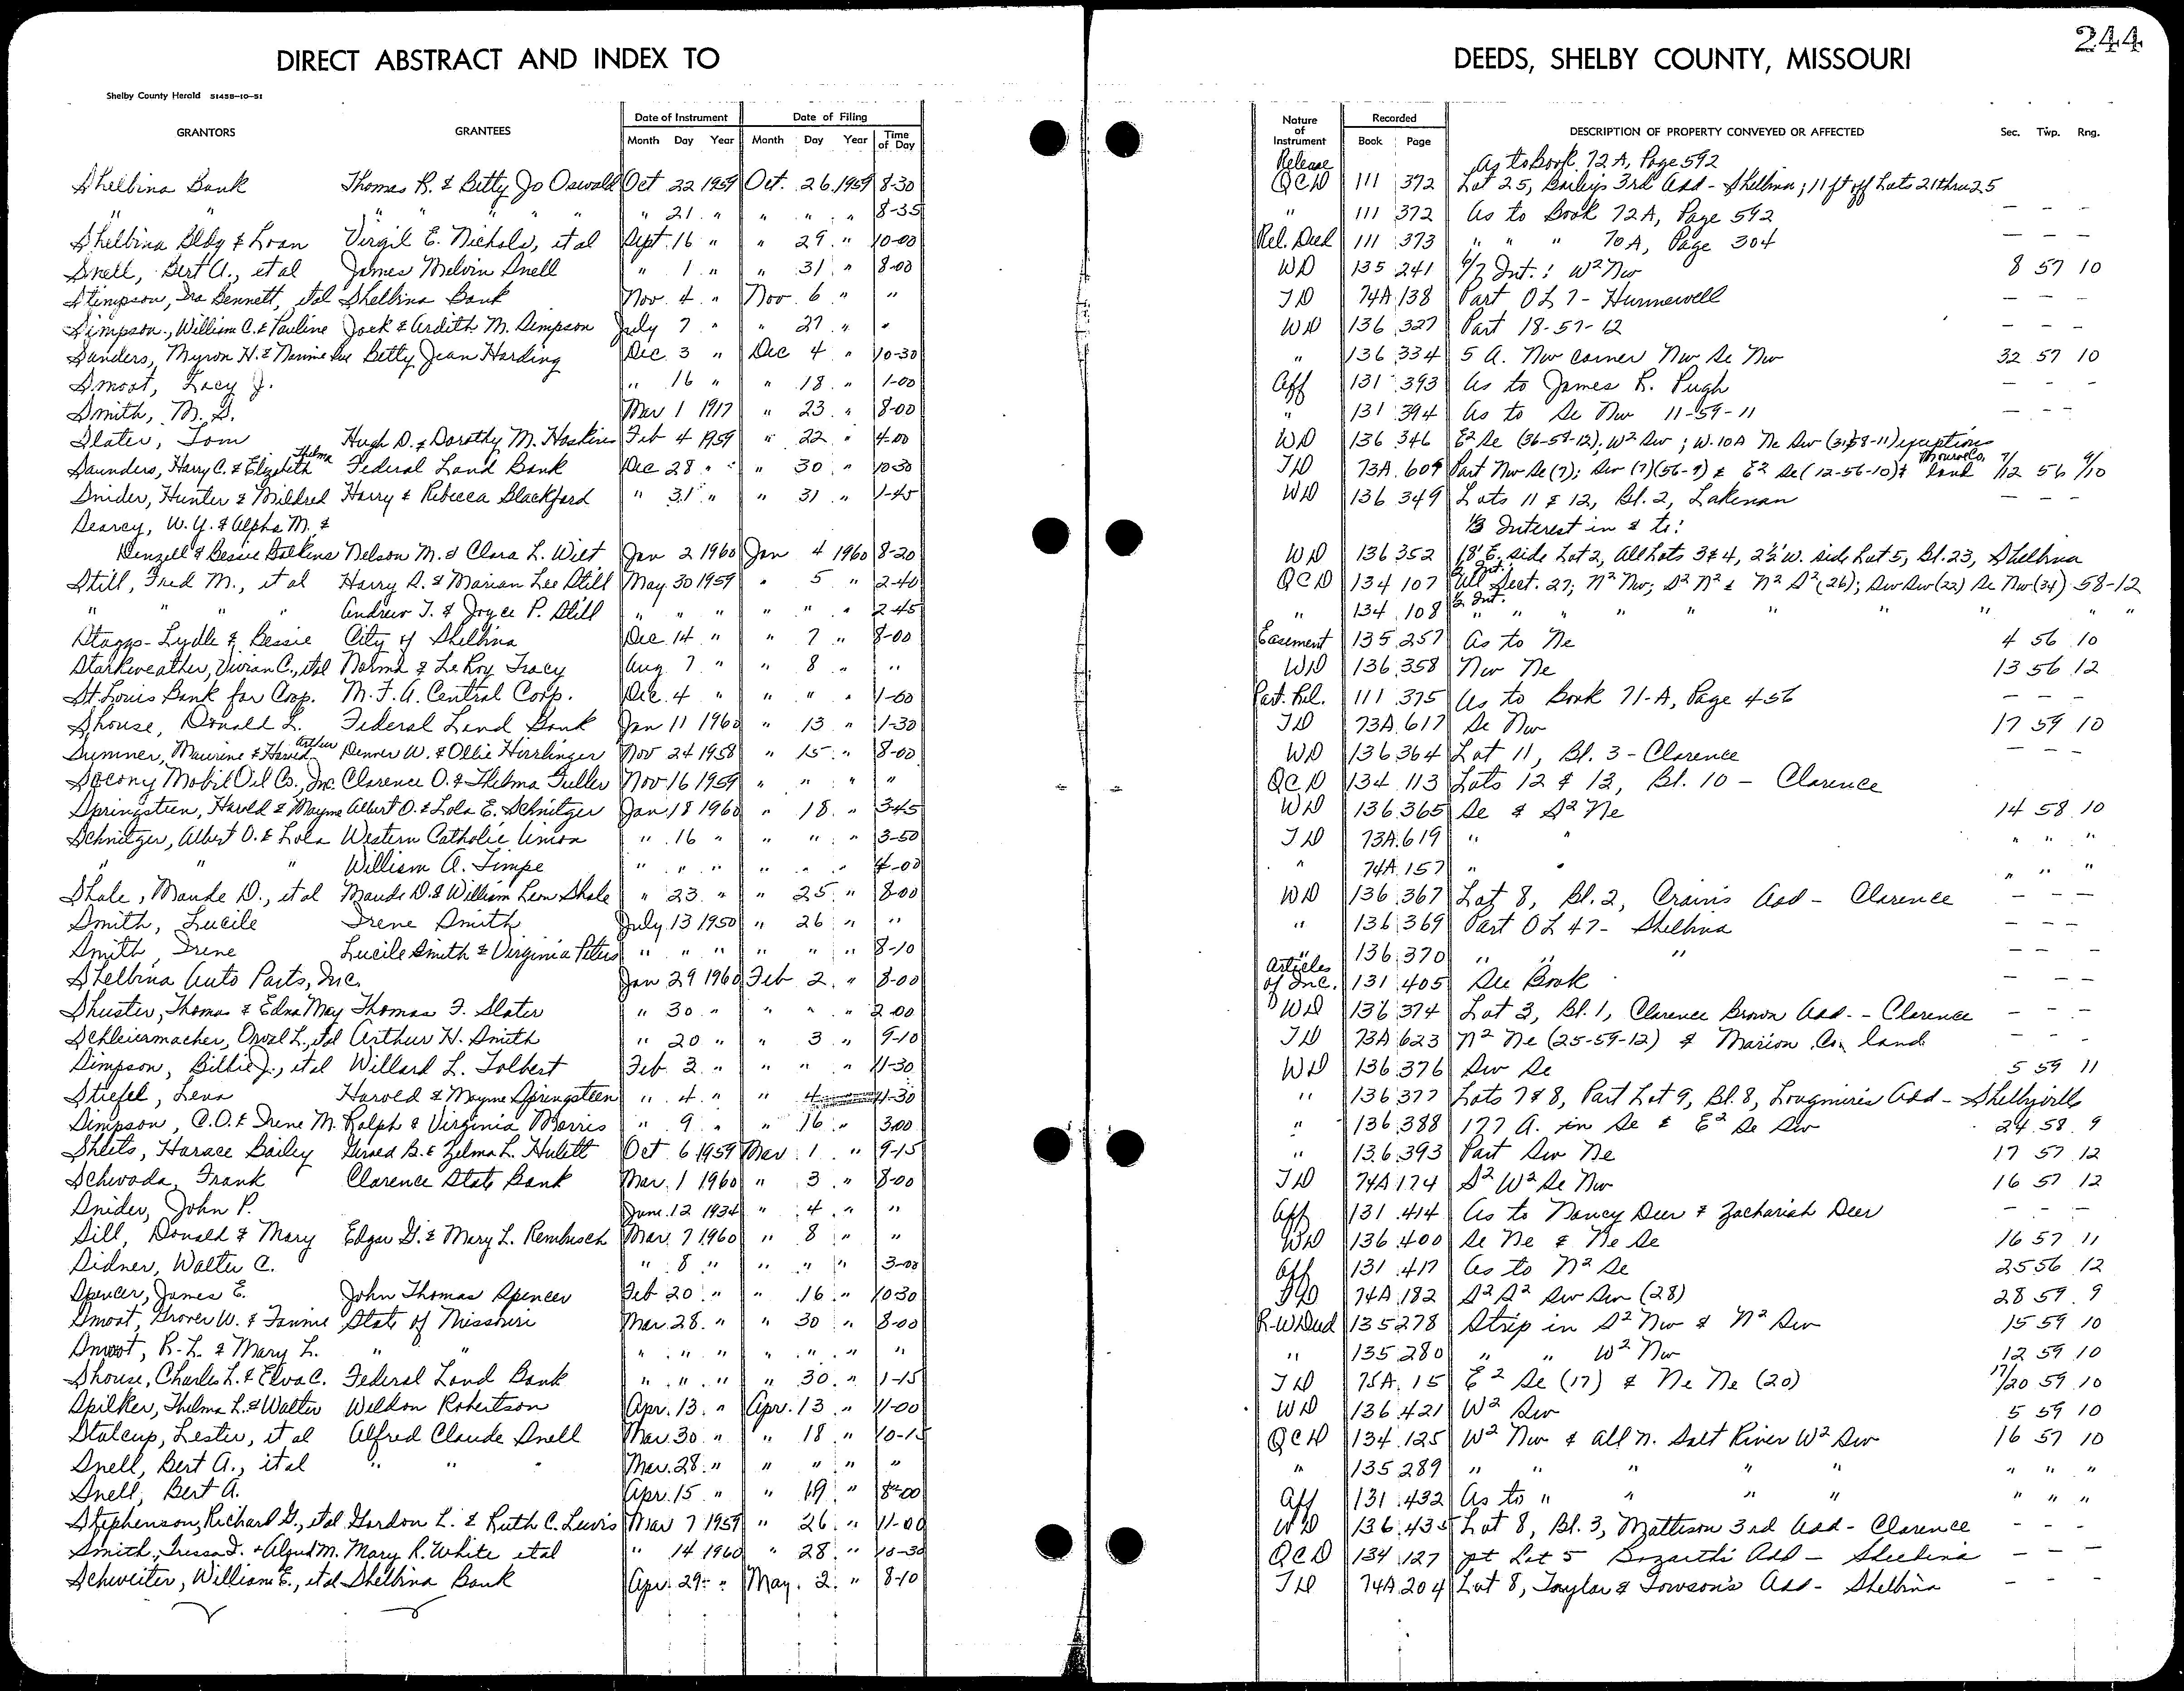 244
DIRECT ABSTRACT AND INDEX TO DEEDS, SHELBY COUNTY, MISSOURI
Shelby County Herald 51458-10-51
GRANTORS GRANTEES Date of Instrument Date of Filing Nature of Instrument Recorded DESCRIPTION OF PROPERTY CONVEYED OR AFFECTED Sec. Twp. Rng.
Month Day Year Month Day Year Time of Day Book Page
Release As to Book 72A, Page 592
Shelbina Bank Thomas R. & Betty Jo Oswald Oct 22 1959 Oct. 26 1959 8-30 QCD 111 372 Lot 25, Bailey's 3rd Add - Shelbina; 11 ft off Lots 21 thru 25
" " " " " " " " 21 " " " " 8-35 " 111 372 As to Book 72A, Page 592 - - -
Shelbina Bldg & Loan Virgil E. Nichols, et al Sept. 16 " " 29 " 10-00 Rel. Deed 111 373 " " " 70A, Page 304 - - -
Snell, Bert A., et al James Melvin Snell " 1 " " 31 " 8-00 WD 135 241 6/7 Int.: W2 Nw 8 57 10
Stimpson, Ira Bennett, etal Shelbina Bank Nov. 4 " Nov. 6 " " TD 74A 138 Part OL 7 - Hunnewell - - -
Simpson, William C. & Pauline Jack & Ardith M. Simpson July 7 " " 27 " " WD 136 327 Part 18-57-12 - - -
Sanders, Myron H. & Nannie Sue Betty Jean Harding Dec. 3 " Dec 4 " 10-30 " 136 334 5 A. Nw corner Nw Se Nw 32 57 10
Smoot, Lacy J. " 16 " " 18 " 1-00 Aff 131 393 As to James R. Pugh - - -
Smith, M. S. Mar 1 1917 " 23 " 8-00 " 131 394 As to Se Nw 11-59-11 - - -
Slater, Tom Hugh D. & Dorothy M. Hoskins Feb 4 1959 " 22 " 4-00 WD 136 346 E2 Se (36-59-12); W2 Sw; W. 10A Ne Sw (31-58-11) exceptions
Saunders, Harry C. & Elizabeth Thelma Federal Land Bank Dec 28 " " 30 " 10-30 TD 73A 609 Part Nw Se (7); Sw (7)(56-9) & E2 Se (12-56-10) & Monroe Co. land 7/12 56 9/10
Snider, Hunter & Mildred Harry & Rebecca Blackford " 31 " " 31 " 1-45 WD 136 349 Lots 11 & 12, Bl. 2, Lakenan - - -
Searcy, W. Y. & Alpha M. & 1/3 Interest in & to:
Denzell & Bessie Balkins Nelson M. & Clara L. Wilt Jan 2 1960 Jan 4 1960 8-20 WD 136 352 18' E. side Lot 2, All Lots 3 & 4, 2½' W. side Lot 5, Bl. 23, Shelbina
Still, Fred M., et al Harry S. & Marian Lee Still May 30 1959 " 5 " 2-40 QCD 134 107 All Sect. 27; N2 Nw; S2 N2 & N2 S2 (26); Sw Sw (22) Se Nw (34) 58-12
" " " " Andrew T. & Joyce P. Still " " " " " " 2-45 " 134 108 ½ Int. " " " " " " " " "
Staggs - Lydle & Bessie City of Shelbina Dec. 14 " " 7 " 8-00 Easement 135 257 As to Ne 4 56 10
Starkweather, Vivian C., etal Norma & LeRoy Tracy Aug 7 " " 8 " " WD 136 358 Nw Ne 13 56 12
St. Louis Bank for Coop. M. F. A. Central Coop. Dec. 4 " " " " 1-00 Part. Rel. 111 375 As to Book 71-A, Page 456 - - -
Shouse, Donald L. Federal Land Bank Jan 11 1960 " 13 " 1-30 TD 73A 617 Se Nw 17 59 10
Sumner, Maurine & Harold Arthur Denver W. & Ollie Hirrlinger Nov 24 1958 " 15 " 8-00 WD 136 364 Lot 11, Bl. 3 - Clarence - - -
Socony Mobil Oil Co., Inc. Clarence O. & Thelma Fuller Nov 16 1959 " " " " QCD 134 113 Lots 12 & 13, Bl. 10 - Clarence
Springsteen, Harold & Mayme Albert O. & Lola E. Schnitzer Jan 18 1960 " 18 " 3-45 WD 136 365 Se & S2 Ne 14 58 10
Schnitzer, Albert O. & Lola Western Catholic Union " 16 " " " " 3-50 TD 73A 619 " " " " "
" " " William A. Timpe " " " " " " 4-00 " 74A 157 " " " " "
Shale, Maude D., et al Maude D. & William Leon Shale " 23 " " 25 " 8-00 WD 136 367 Lot 8, Bl. 2, Crain's Add - Clarence - - -
Smith, Lucile Irene Smith July 13 1950 " 26 " " " 136 369 Part OL 47 - Shelbina - - -
Smith, Irene Lucile Smith & Virginia Peters " " " " " " 8-10 " 136 370 " " " - - -
Shelbina Auto Parts, Inc. Jan 29 1960 Feb 2 " 8-00 Articles of Inc. 131 405 See Book
Shuster, Thomas & Edna May Thomas F. Slater " 30 " " " " 2-00 WD 136 374 Lot 3, Bl. 1, Clarence Brown Add. - Clarence - - -
Schleiermacher, Orval L., etal Arthur H. Smith " 20 " " 3 " 9-10 TD 73A 623 N2 Ne (25-59-12) & Marion Co. land - - -
Simpson, Billie J., et al Willard L. Tolbert Feb. 3 " " " " 11-30 WD 136 376 Sw Se 5 59 11
Stiefel, Lena Harold & Mayme Springsteen " 4 " " 4 11-30 " 136 377 Lots 7 & 8, Part Lot 9, Bl. 8, Longmire's Add - Shelbyville
Simpson, C.O. & Irene M. Ralph & Virginia Morris " 9 " " 16 " 3-00 " 136 388 177 A. in Se & E2 Se Sw 24 58 9
Sheets, Horace Bailey Gerald B. & Zelma L. Hulett Oct 6 1959 Mar. 1 " 9-15 " 136 393 Part Sw Ne 17 57 12
Schwada, Frank Clarence State Bank Mar. 1 1960 " 3 " 8-00 TD 74A 174 S2 W2 Se Nw 16 57 12
Snider, John P. June 12 1934 " 4 " " Aff 131 414 As to Nancy Deer & Zachariah Deer - - -
Sill, Donald & Mary Edgar G. & Mary L. Rembusch Mar. 7 1960 " 8 " " WD 136 400 Se Ne & Ne Se 16 57 11
Sidner, Walter C. " 8 " " " " 3-00 Aff 131 417 As to N2 Se 25 56 12
Spencer, James E. John Thomas Spencer Feb 20 " " 16 " 10-30 TD 74A 182 S2 S2 Sw Sw (28) 28 59 9
Smoot, Grover W. & Fannie State of Missouri Mar. 28 " " 30 " 8-00 R-W Deed 135 278 Strip in S2 Nw & N2 Sw 15 59 10
Smoot, R. L. & Mary L. " " " " " " " " " " 135 280 " " W2 Nw 12 59 10
Shouse, Charles L. & Elva C. Federal Land Bank " " " " 30 " 1-15 TD 75A 15 E2 Se (17) & Ne Ne (20) 17/20 59 10
Spilker, Thelma L. & Walter Weldon Robertson Apr. 13 " Apr. 13 " 11-00 WD 136 421 W2 Sw 5 59 10
Stalcup, Lester, et al Alfred Claude Snell Mar. 30 " " 18 " 10-15 QCD 134 125 W2 Nw & all N. Salt River W2 Sw 16 57 10
Snell, Bert A., et al " " " Mar. 28 " " " " " " 135 289 " " " " " " " "
Snell, Bert A. Apr. 15 " " 19 " 8-00 Aff 131 432 As to " " " " " " "
Stephenson, Richard G., etal Gordon L. & Ruth C. Lewis Mar 7 1959 " 26 " 11-00 WD 136 435 Lot 8, Bl. 3, Mattison 3rd Add - Clarence - - -
Smith, & M. Mary R. White et al " 14 1960 " 28 " 10-30 QCD 134 127 pt Lot 5 Bozarth's Add - Shelbina - - -
Schweiter, William E., etal Shelbina Bank Apr. 29 " May. 2 " 8-10 TD 74A 204 Lot 8, Taylor & Towson's Add - Shelbina - - -